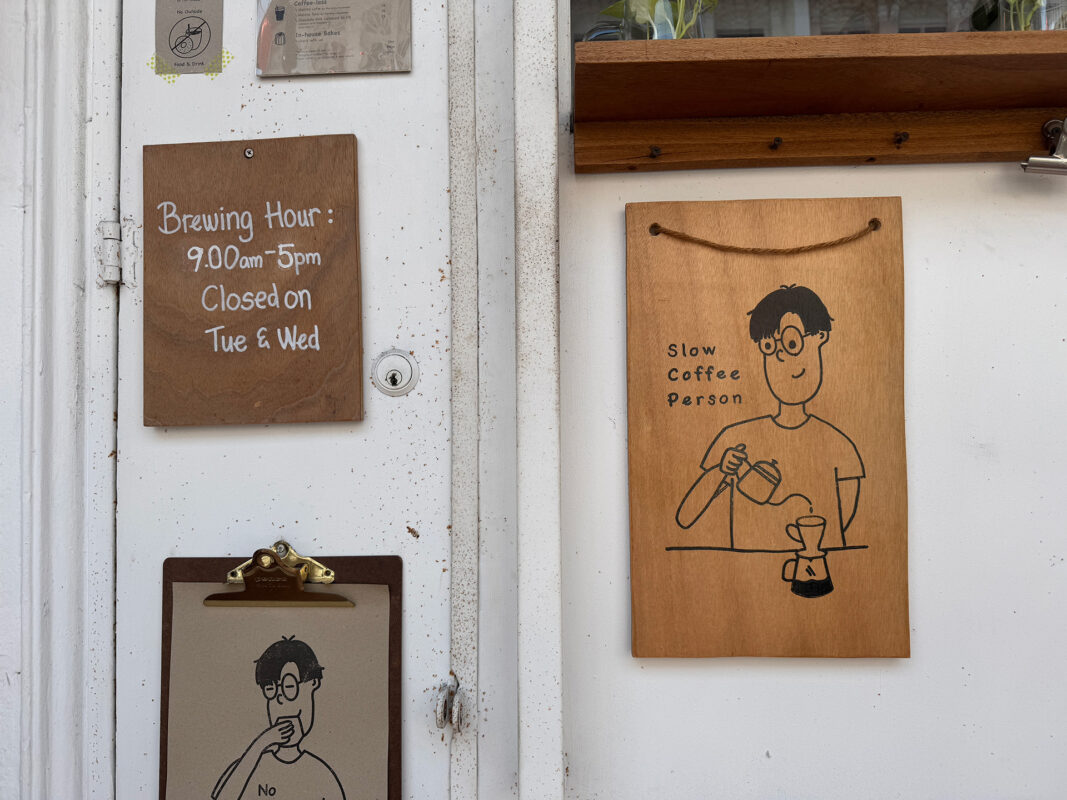 No Outside
Food & Drink
Coffee-less
In-house Bakes
Brewing Hour:
9.00am-5pm
Closed on
Tue & Wed
Slow
Coffee
Person
No